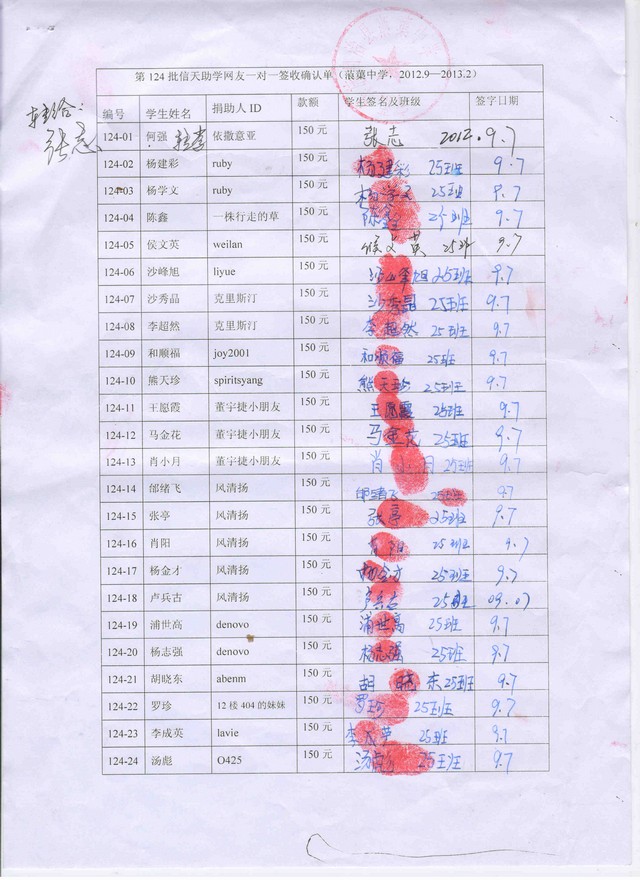 第 124 批信天助学网友一对一签收确认单（菠菓中学，2012.9—2013.2）
编号 学生姓名 捐助人 ID 款额 学生签名及班级 签字日期
转给：
张志
124-01 何强 转李 依撒意亚 150 元 张志 2012.9.7
124-02 杨建彩 ruby 150 元 杨建彩 25班 9.7
124-03 杨学文 ruby 150 元 杨学文 25班 9.7
124-04 陈鑫 一株行走的草 150 元 陈鑫 25班 9.7
124-05 侯文英 weilan 150 元 侯文英 25班 9.7
124-06 沙峰旭 liyue 150 元 沙峰旭 25班 9.7
124-07 沙秀品 克里斯汀 150 元 沙秀品 25班 9.7
124-08 李超然 克里斯汀 150 元 李超然 25班 9.7
124-09 和顺福 joy2001 150 元 和顺福 25班 9.7
124-10 熊天珍 spiritsyang 150 元 熊天珍 25班 9.7
124-11 王愿霞 董宇捷小朋友 150 元 王愿霞 25班 9.7
124-12 马金花 董宇捷小朋友 150 元 马金花 25班 9.7
124-13 肖小月 董宇捷小朋友 150 元 肖小月 25班 9.7
124-14 邰绪飞 风清扬 150 元 25班 9.7
124-15 张亭 风清扬 150 元 张亭 25班 9.7
124-16 肖阳 风清扬 150 元 肖阳 25班 9.7
124-17 杨金才 风清扬 150 元 杨金才 25班 9.7
124-18 卢兵古 风清扬 150 元 卢兵古 25班 09.07
124-19 浦世高 denovo 150 元 浦世高 25班 9.7
124-20 杨志强 denovo 150 元 杨志强 25班 9.7
124-21 胡晓东 abenm 150 元 胡晓东 25班 9.7
124-22 罗珍 12 楼 404 的妹妹 150 元 罗珍 25班 9.7
124-23 李成英 lavie 150 元 李成英 25班 9.7
124-24 汤彪 O425 150 元 汤彪 25班 9.7